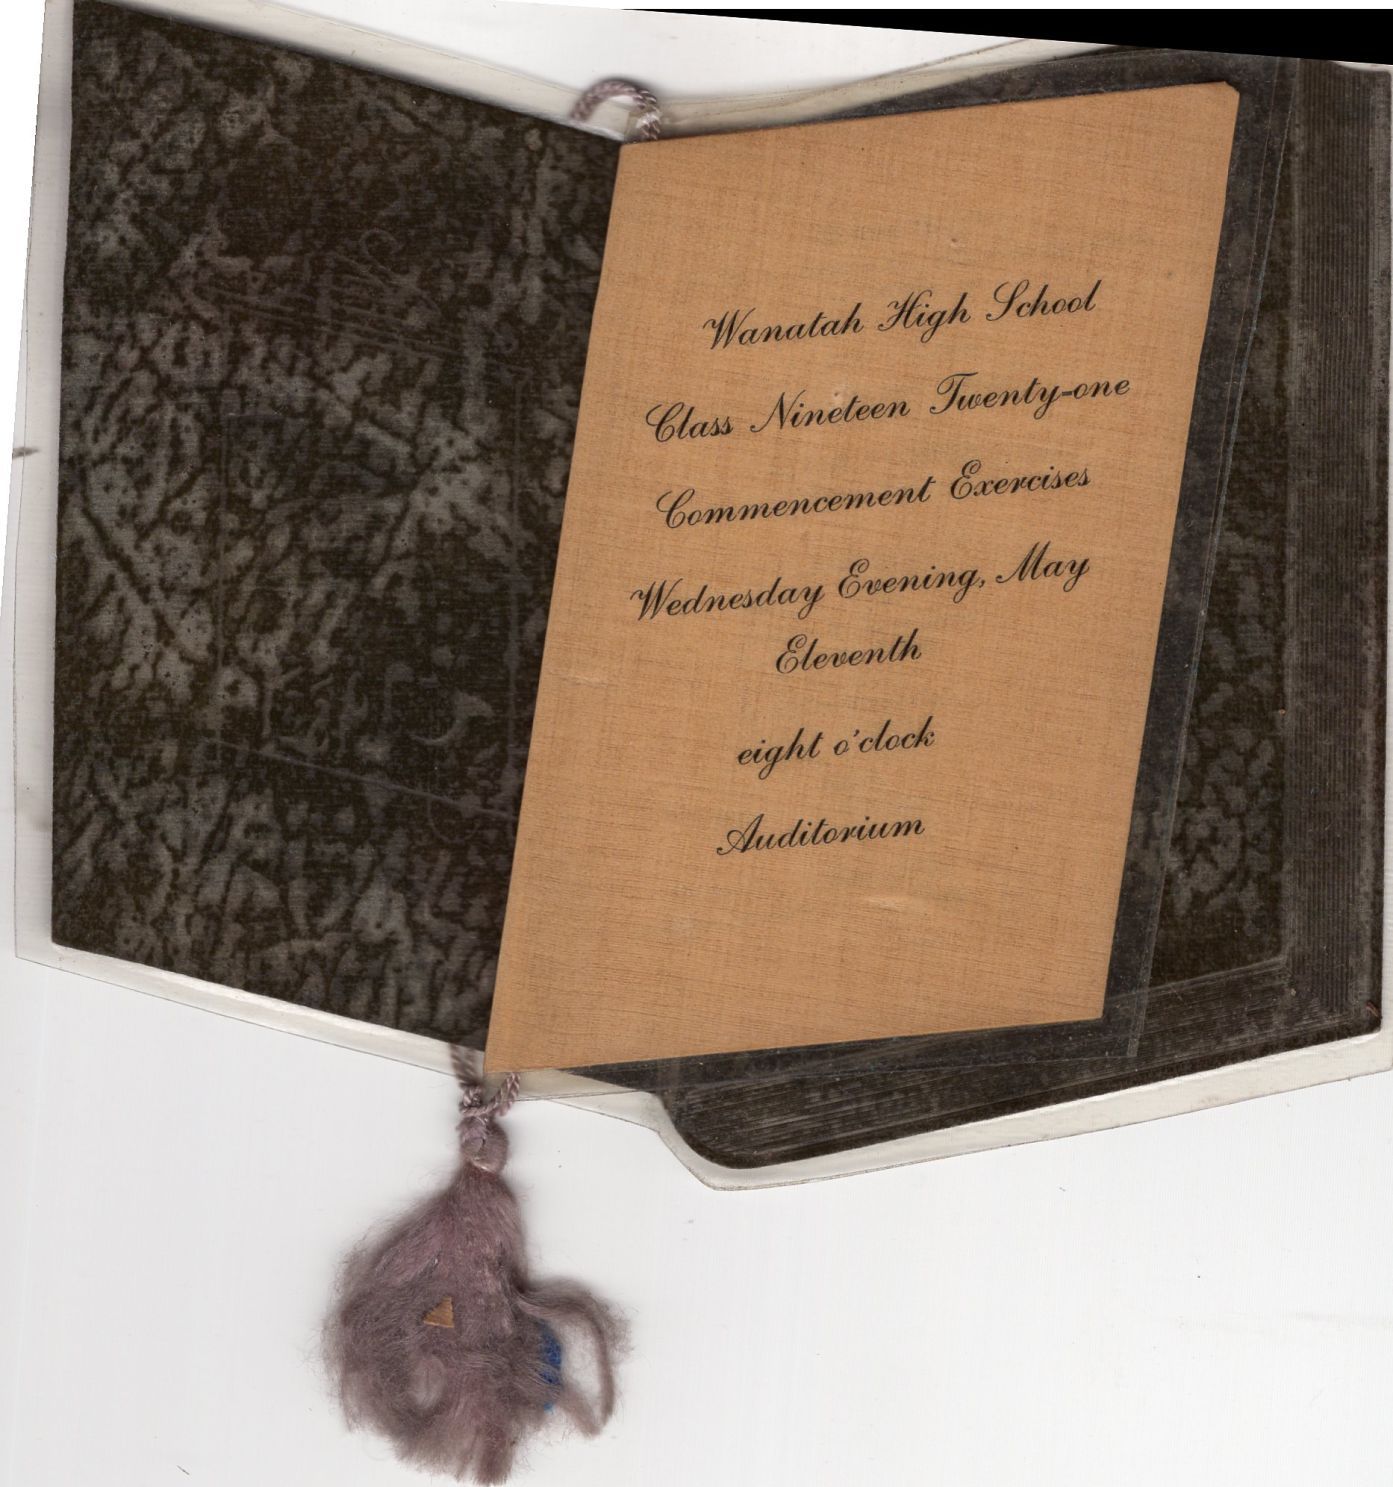 Wanatah High School
Class Nineteen Twenty-one
Commencement Exercises
Wednesday Evening, May
Eleventh
eight o'clock
Auditorium